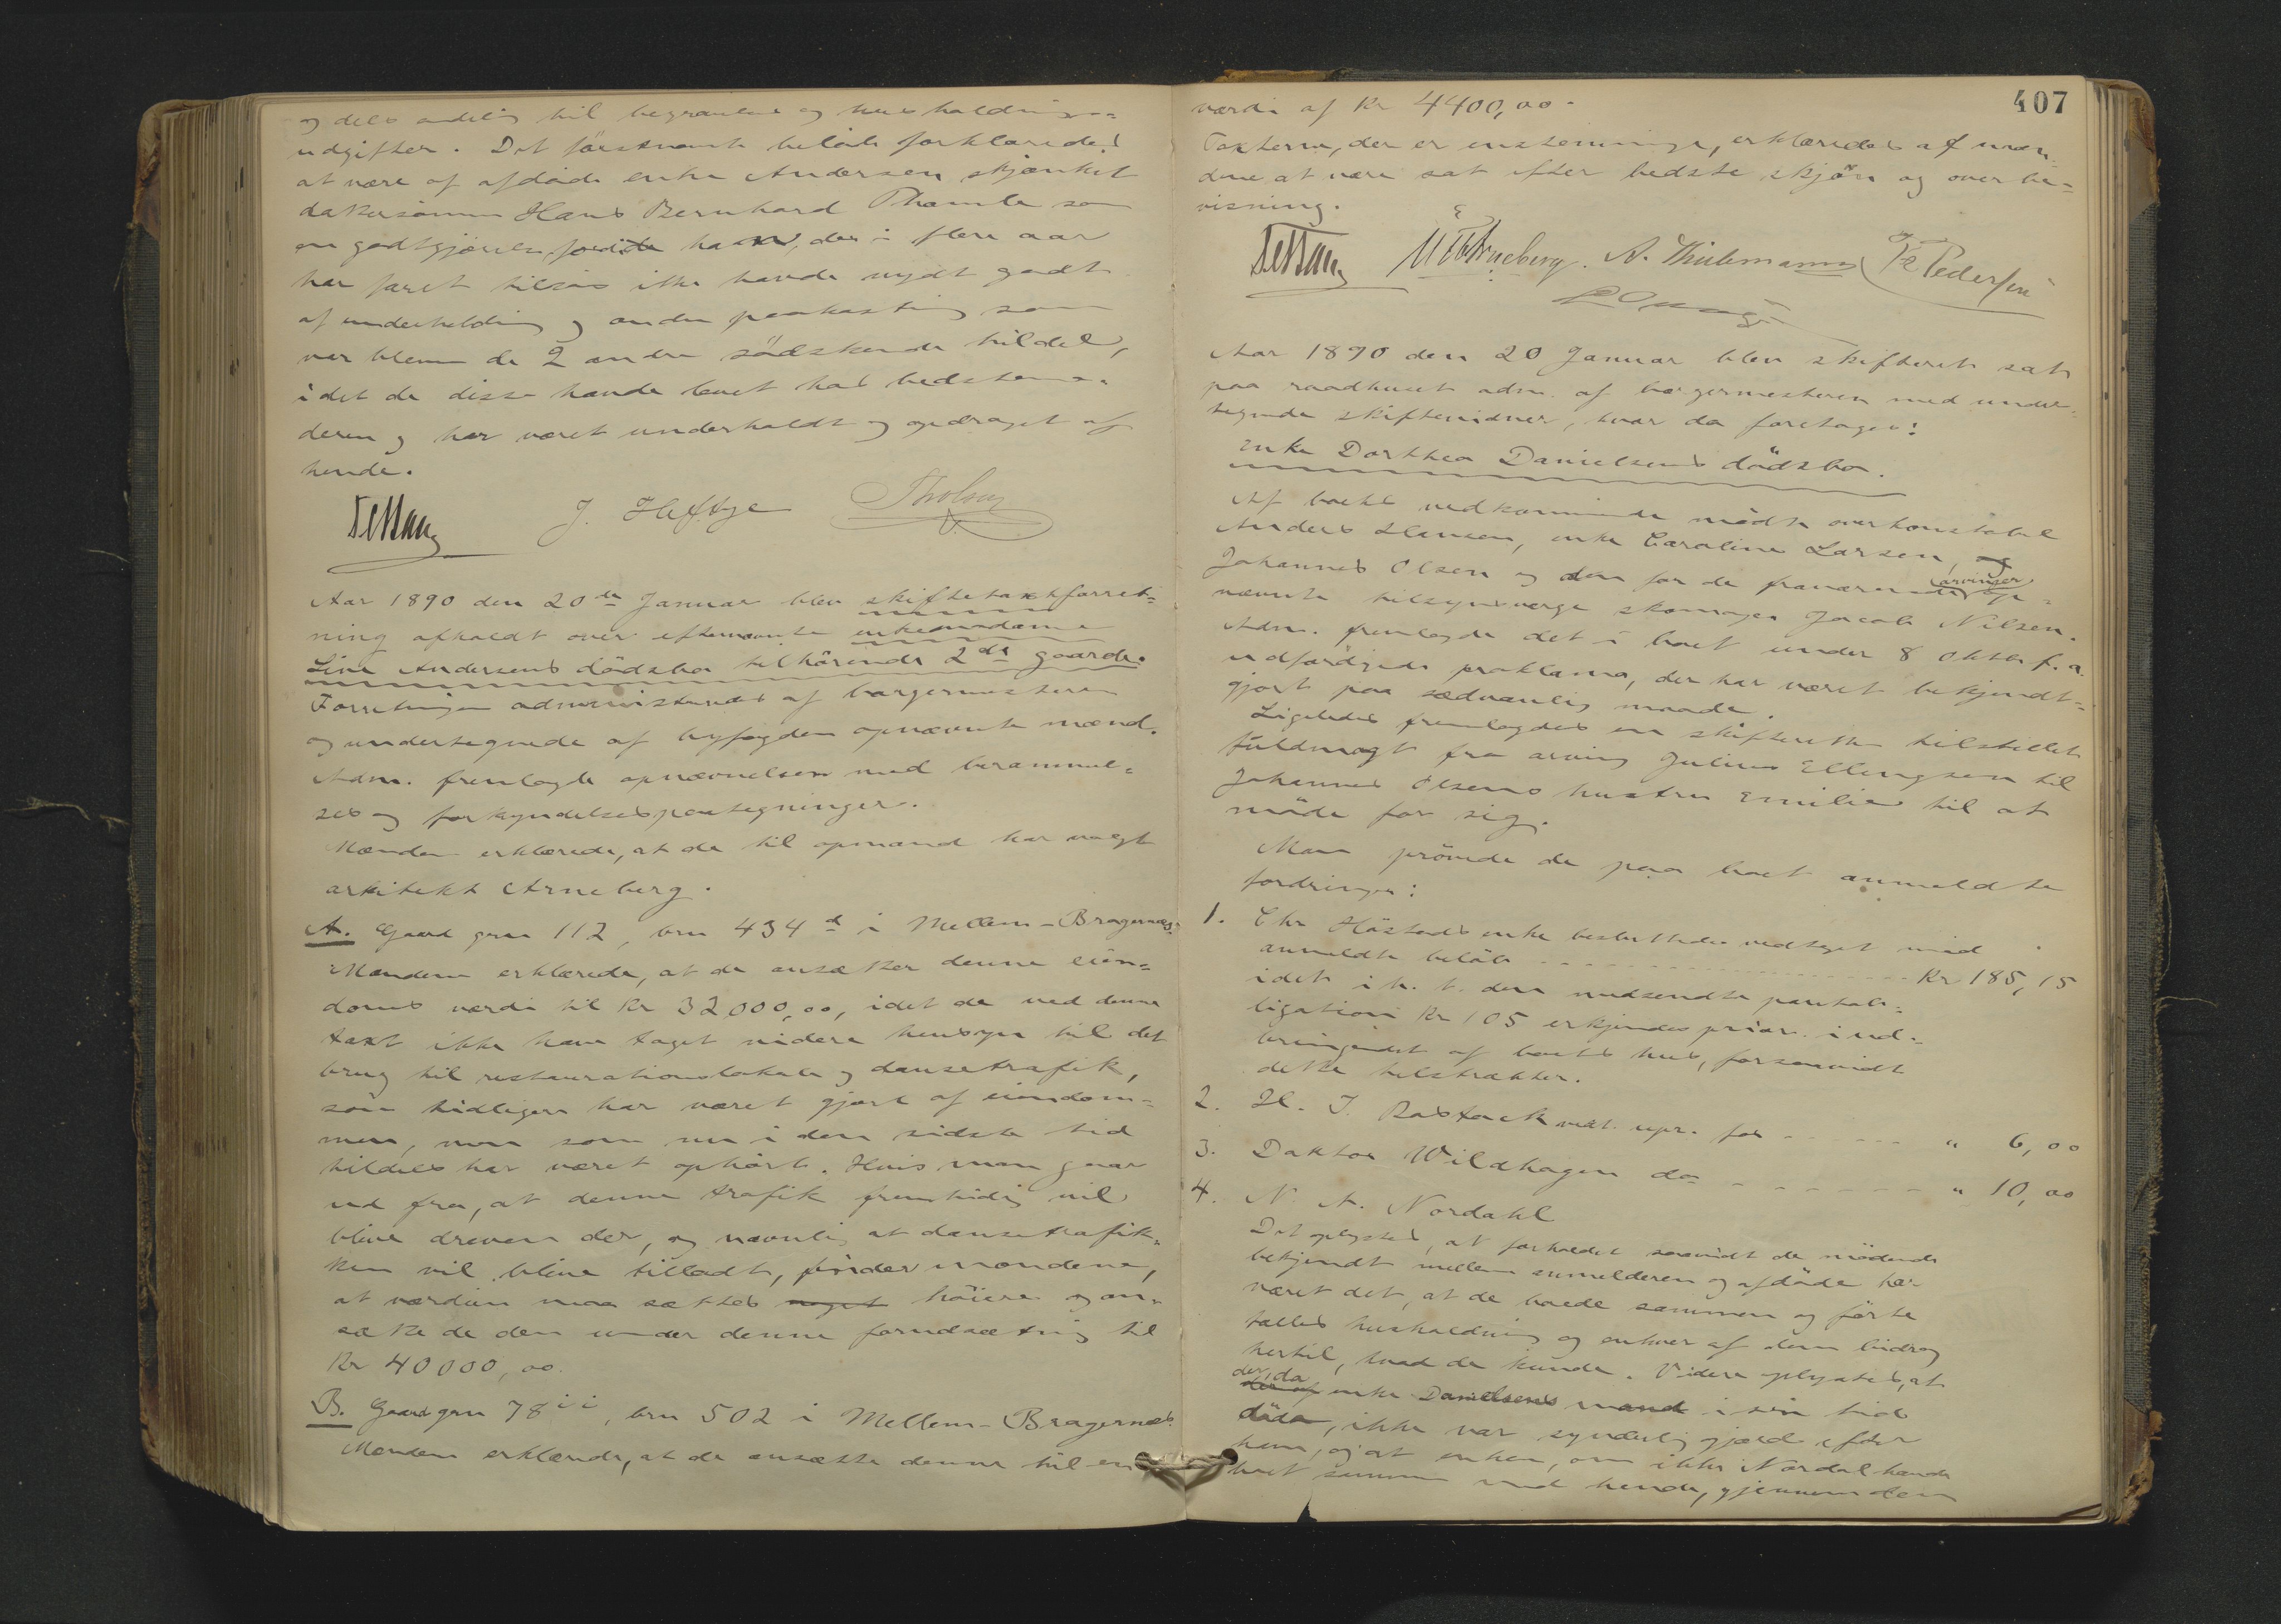 og dels endelig til begravelses og husholdnings=
udgifter. Det förstnævnte belöb forklaredes
at være af afdöde enke Andersen skjænket
dattersönnen Hans Bernhard Thamle som
en godtgjörelse fordi han, der i flere aar
har faret tilsös ikke havde nydt godt
af underholdning og anden paakostning som
var bleven de 2 andre södskende tildel,
idet de disse havde boet hos bedstemo=
deren og har været underholdt og opdraget af
hende.
J. Heftye
Aar 1890 den 20de Januar blev skiftetaxtforret=
ning afholdt over efternævnte enkemadame
Line Andersens dödsbo tilhörende 2de gaarde.
Forretningen administreredes af borgermesteren
og undertegnede af byfogden opnævnte mænd.
Adm. fremlagde opnævnelsen med berammel=
ses og forkyndelsespaategninger.
Mændene erklærede, at de til opmand har valgt
arkitekt Arneberg.
A. Gaard grn 112, brn 434d i Mellem-Bragernæs.
Mændene erklærede, at de ansætter denne eien=
doms værdi til Kr 32,000,00, idet de ved denne
taxt ikke have taget videre hensyn til det
brug til restaurationslokale og dansetrafik,
som tidligere har været gjort af eiendom=
men, men som nu i den sidste tid
tildels har været ophört. Hvis man gaar
ud fra, at denne trafik fremtidig vil
blive dreven der, og navnlig at dansetrafik=
ken vil blive tilladt, finder mændene,
at værdien maa sættes noget höiere og an=
sætte de den under denne forudsætning til
Kr 40000,00.
B. Gaard grn 78ii, brn 502 i Mellem-Bragernæs.
Mændene erklærede, at de ansætte denne til en
407
værdi af Kr 4400,00.
Taxterne, der er enstemmige, erklæredes af mæn=
dene at være sat efter bedste skjön og overbe=
visning.
Arneberg. A. Thielemann Pedersen
Aar 1890 den 20 Januar blev skifteret sat
paa raadhuset adm. af borgermesteren med under=
tegnede skiftevidner, hvor da foretoges:
Enke Dorthea Danielsens dödsbo.
Af boets vedkommende mödte overkonstabel
Anders Hansen, enke Caroline Larsen, og
Johannes Olsen og den for de fraværende arvinger op=
nævnte tilsynsverge skomager Jacob Nilsen.
Adm. fremlagde det i boet under 8 Oktbr f.a.
udfærdigede proklama, der har været bekjendt=
gjort paa sædvanlig maade.
Ligeledes fremlagdes en skifteretten tilstillet
fuldmagt fra arving Julius Ellingsen til
Johannes Olsens hustru Emilie til at
möde for sig.
Man prövede de paa boet anmeldte
fordringer:
1. Chr Höstads enke besluttedes vedtaget med
anmeldte belöb Kr 185,15
idet i h. t. den medsendte panteob=
ligation Kr 105 erkjendes prior. i ud=
bringendet af boets hus, forsaavidt
dette tilstrækker.
2. H. J. Bastack vedt. upr. for " 6,00
3. Doktor Wildhagen do " 10,00
4. N. A. Nordahl
Det oplystes, at forholdet saavidt de mödende
bekjendt mellem anmelderen og afdöde har
været det, at de boede sammen og förte
fælles husholdning og enhver af dem bidrog
hertil, hvad de kunde. Videre oplystes, at
der, da
der af enke Danielsens mand i sin tid
döde, ikke var synderlig gjæld efter
ham, og at enken, om ikke Nordal havde
boet sammen med hende, gjennem den